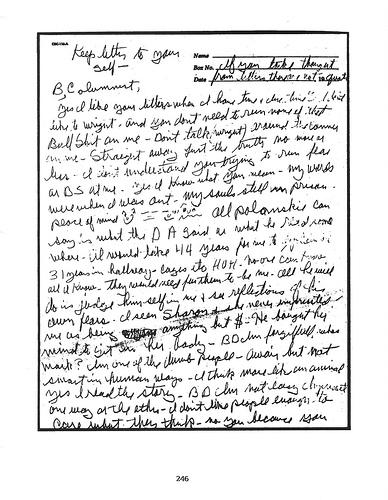 CDC-116-A
Keep letter to your
self—
Name
Box No. If you take thought
Date from letters there not in quotes
B Columnust,
Yes I like your letters when I have time
like to wright. and you dont need to run none of that
Bull Shit on me - Dont talk, wright around the corner
on me - Straight away Just the truth no more
less. I dont understand you trying to run fear
or BS at me. Yes I know what you mean - my words
were when I was out - my souls still in prison.
peace of mind all polanskie can
say is what the D A said or what he
where - it would take 44 years for me to
3 1 years in hallway - cages to HOH. no one can know
all I know. They would need to be me. All he will
do is judge him self in me & see reflections of his
own fears. I seen Sharon & she never impressed
me as being anything but $ - He bought her
mind to get in her body - BD Im who's
mark? Im one of the dumb people - Awair but not
smart in human ways - I think more like an animal
yes I read the story. - BD Im not easy
one way or the other - I dont like people enough to
care what they think - no you because you
246